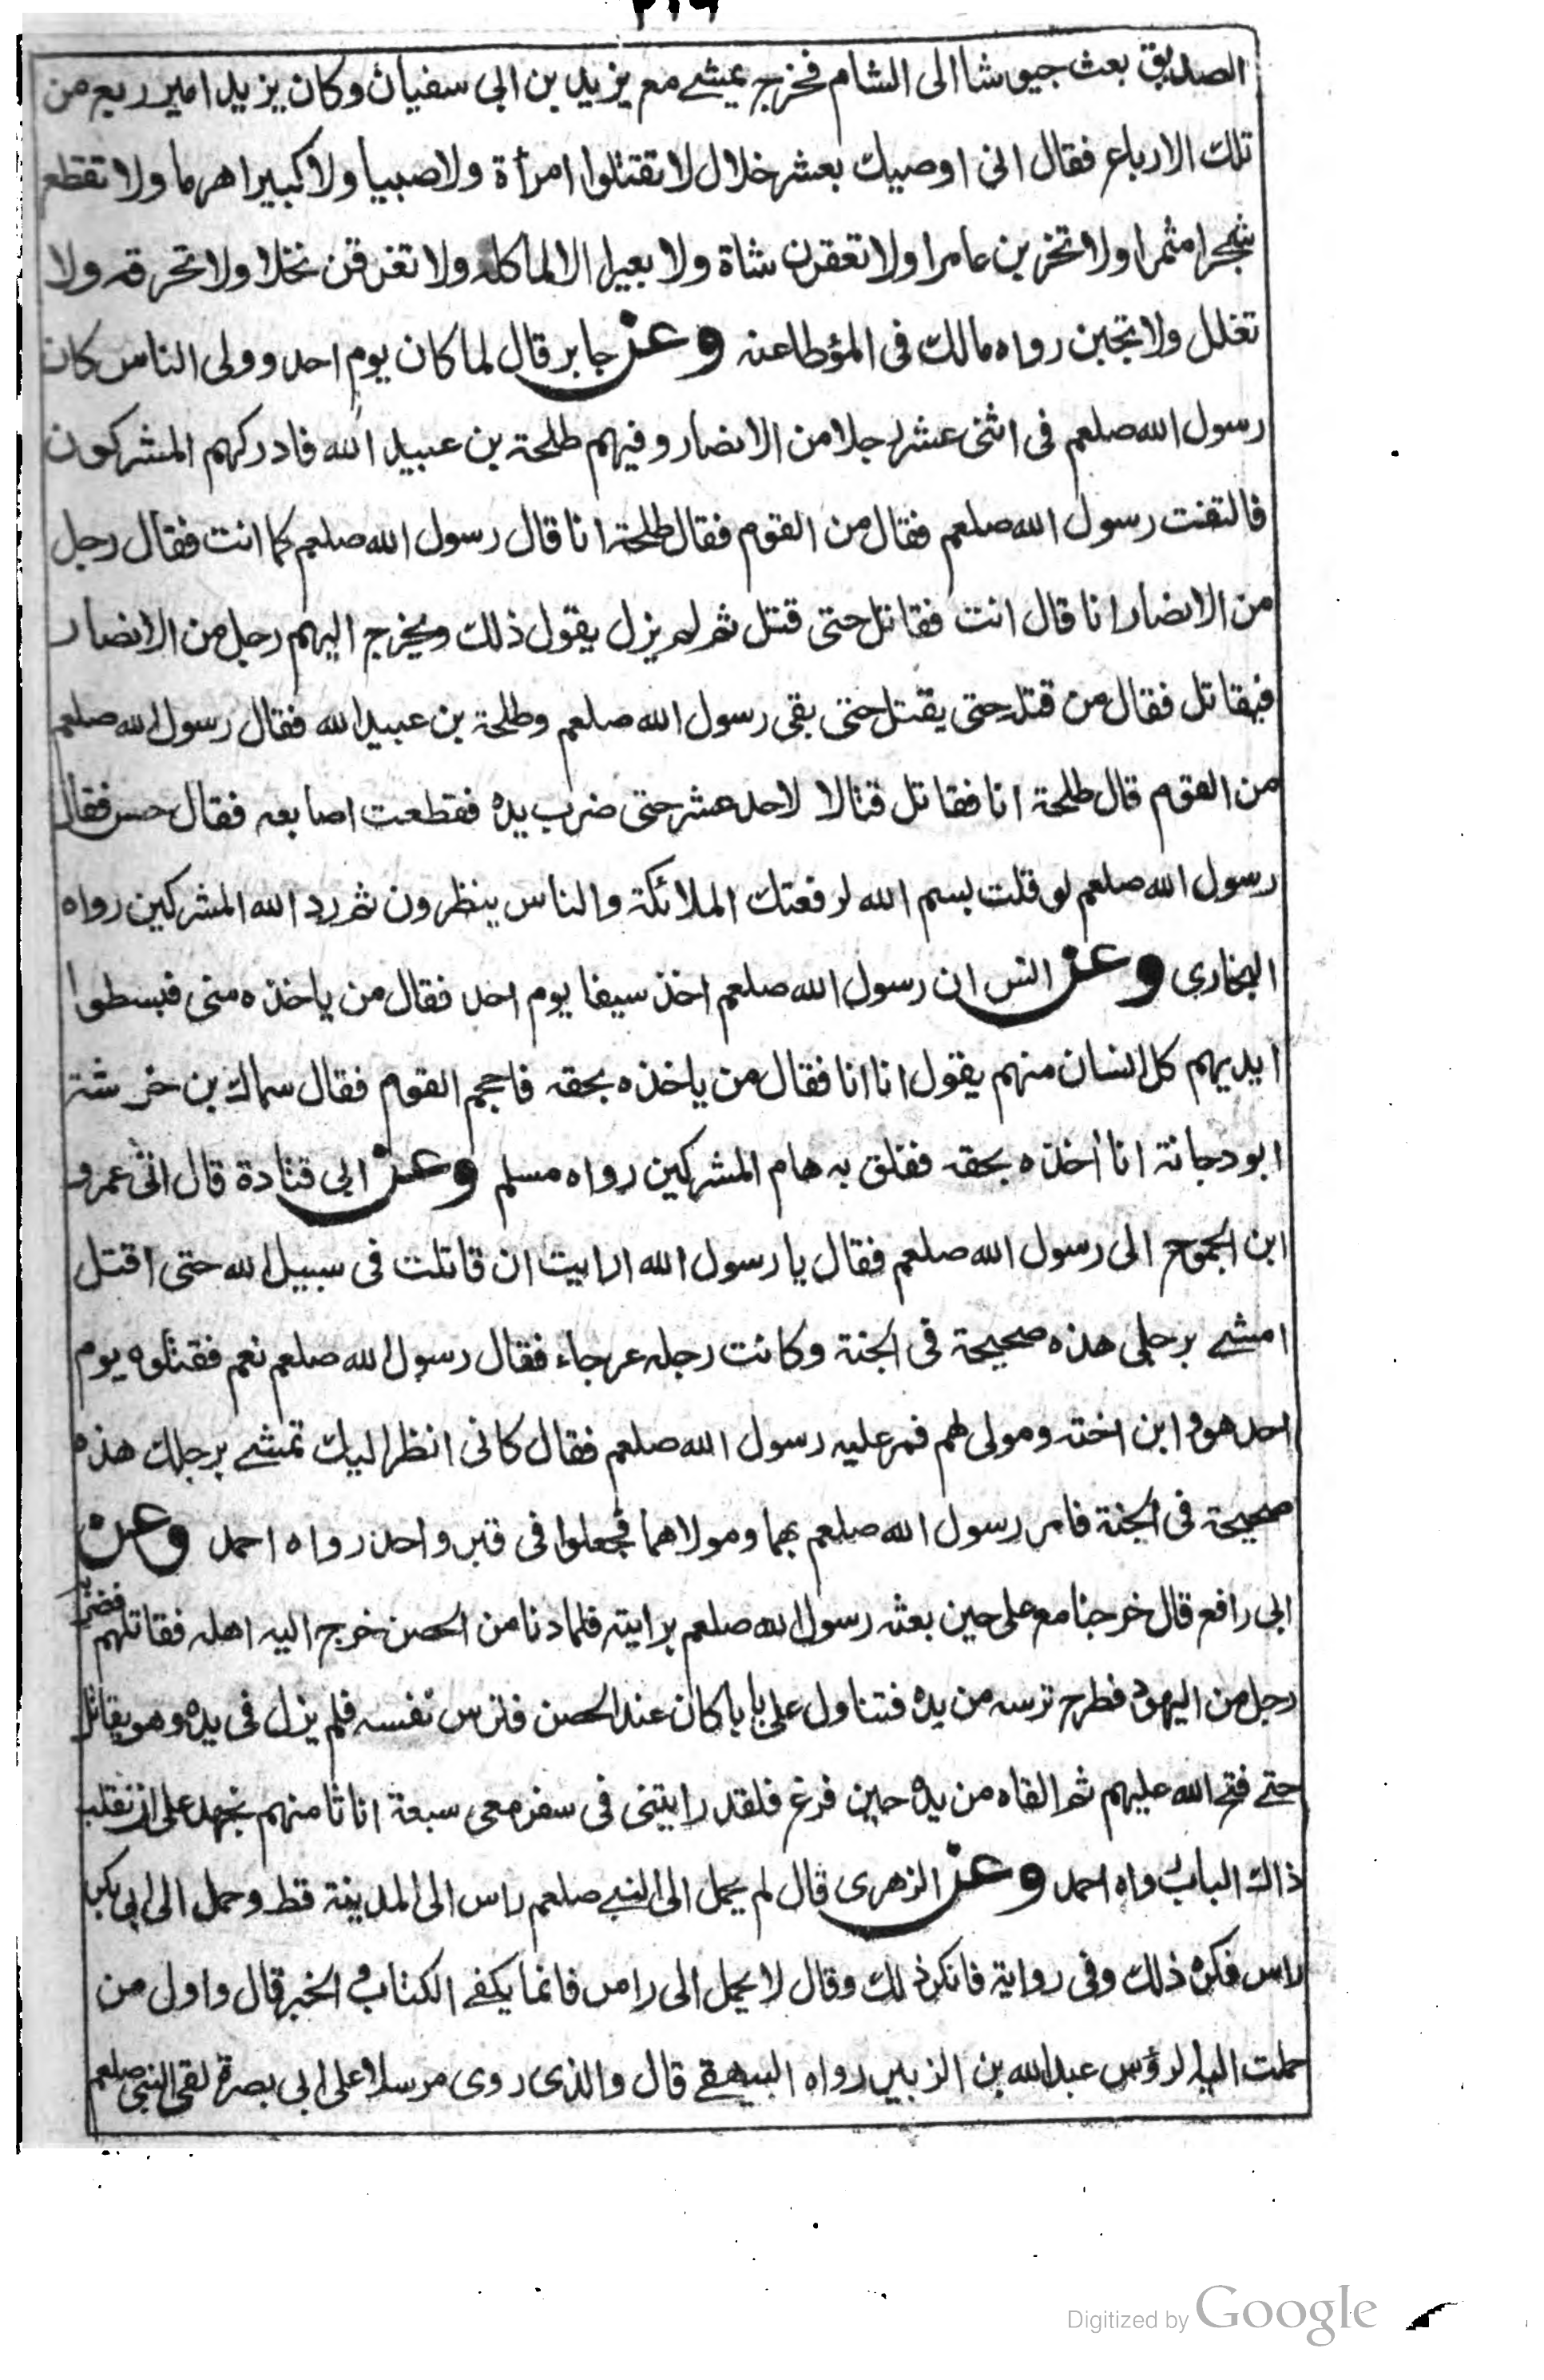 الصديق بعث جيوشا الى الشام فخرج يمشے مع يزيد بن ابى سفيان وكان يزيد امير ربع من
تلك الارباع فقال انى اوصيك بعشر خلال لا تقتلوا امرأة ولا صبيا ولا كبيرا هرما ولا تقطع
شجرا مثمرا ولا تخربن عامرا ولا تعقرن شاة ولا بعيرا الا لماكله ولا تغرقن نخلا ولا تحرقه ولا
تغلل ولا تجبن رواه مالك فى المؤطا عنه وعن جابر قال لما كان يوم احد وولى الناس كان
رسول الله صلعم فى اثنى عشر رجلا من الانصار وفيهم طلحة بن عبيد الله فادركهم المشركون
فالتفت رسول الله صلعم فقال من القوم فقال طلحة انا قال رسول الله صلعم كما انت فقال رجل
من الانصار انا قال انت فقاتل حتى قتل ثم لم يزل يقول ذلك ويخرج اليهم رجل من الانصار
فيقاتل فقال من قتل حتى يقتل حتى بقى رسول الله صلعم وطلحة بن عبيد الله فقال رسول الله صلعم
من القوم قال طلحة انا فقاتل قتالا لاحد عشر حتى ضرب يده فقطعت اصابعه فقال حس فقال
رسول الله صلعم لو قلت بسم الله لرفعتك الملائكة والناس ينظرون ثم رد الله المشركين رواه
البخارى وعن انس ان رسول الله صلعم اخذ سيفا يوم احد فقال من ياخذه منى فبسطوا
ايديهم كل انسان منهم يقول انا انا فقال من ياخذه بحقه فاحجم القوم فقال سماك بن خرشة
ابو دجانة انا أخذه بحقه ففلق به هام المشركين رواه مسلم وعن ابى قتادة قال اتى عمرو
ابن الجموح الى رسول الله صلعم فقال يا رسول الله ارايت ان قاتلت فى سبيل الله حتى اقتل
امشے برجلى هذه صحيحة فى الجنة وكانت رجله عرجاء فقال رسول الله صلعم نعم فقتلوه يوم
احد هو وابن اخته ومولى لهم فمر عليه رسول الله صلعم فقال كانى انظر اليك تمشے برجلك هذه
صحيحة فى الجنة فامر رسول الله صلعم بهما ومولاهما فجعلوا فى قبر واحد رواه احمد وعن
ابى رافع قال خرجنا مع على حين بعثه رسول الله صلعم برايته فلما دنا من الحصن خرج اليه اهله فقاتلهم فضربه
رجل من اليهود فطرح ترسه من يده فتناول على بابا كان عند الحصن فترس نفسه فلم يزل فى يده وهو يقاتل
حتے فتح الله عليهم ثم القاه من يده حين فرغ فلقد رايتنى فى سفر معى سبعة انا ثامنهم نجهد على ان نقلب
ذاك الباب رواه احمد وعن الزهرى قال لم يحمل الى النبے صلعم راس الى المدينة قط وحمل الى ابى بكر
راس فكره ذلك وفى رواية فانكر ذلك وقال لا يحمل الى راس فانما يكفے الكتاب و الخبر قال واول من
حملت اليه الرؤس عبد الله بن الزبير رواه البيهقے قال والذى روى مرسلا على ابى بصرة لقى النبى صلعم
Digitized by Google